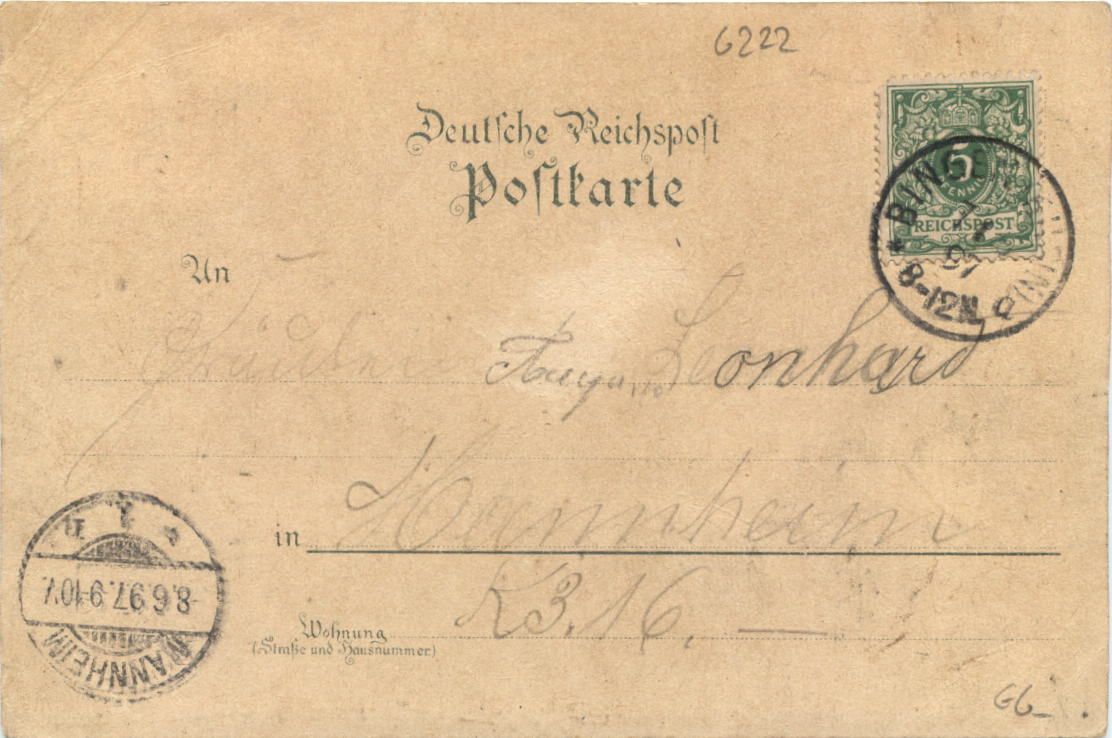 6222
Deutsche Reichspost
Postkarte
5
PFENNIG
REICHSPOST
* BINGEN
97
8-12N
An
Leonhard
in Mannheim
K3.16.
Wohnung
(Straße und Hausnummer)
MANNHEIM
8.6.97. 9-10V.